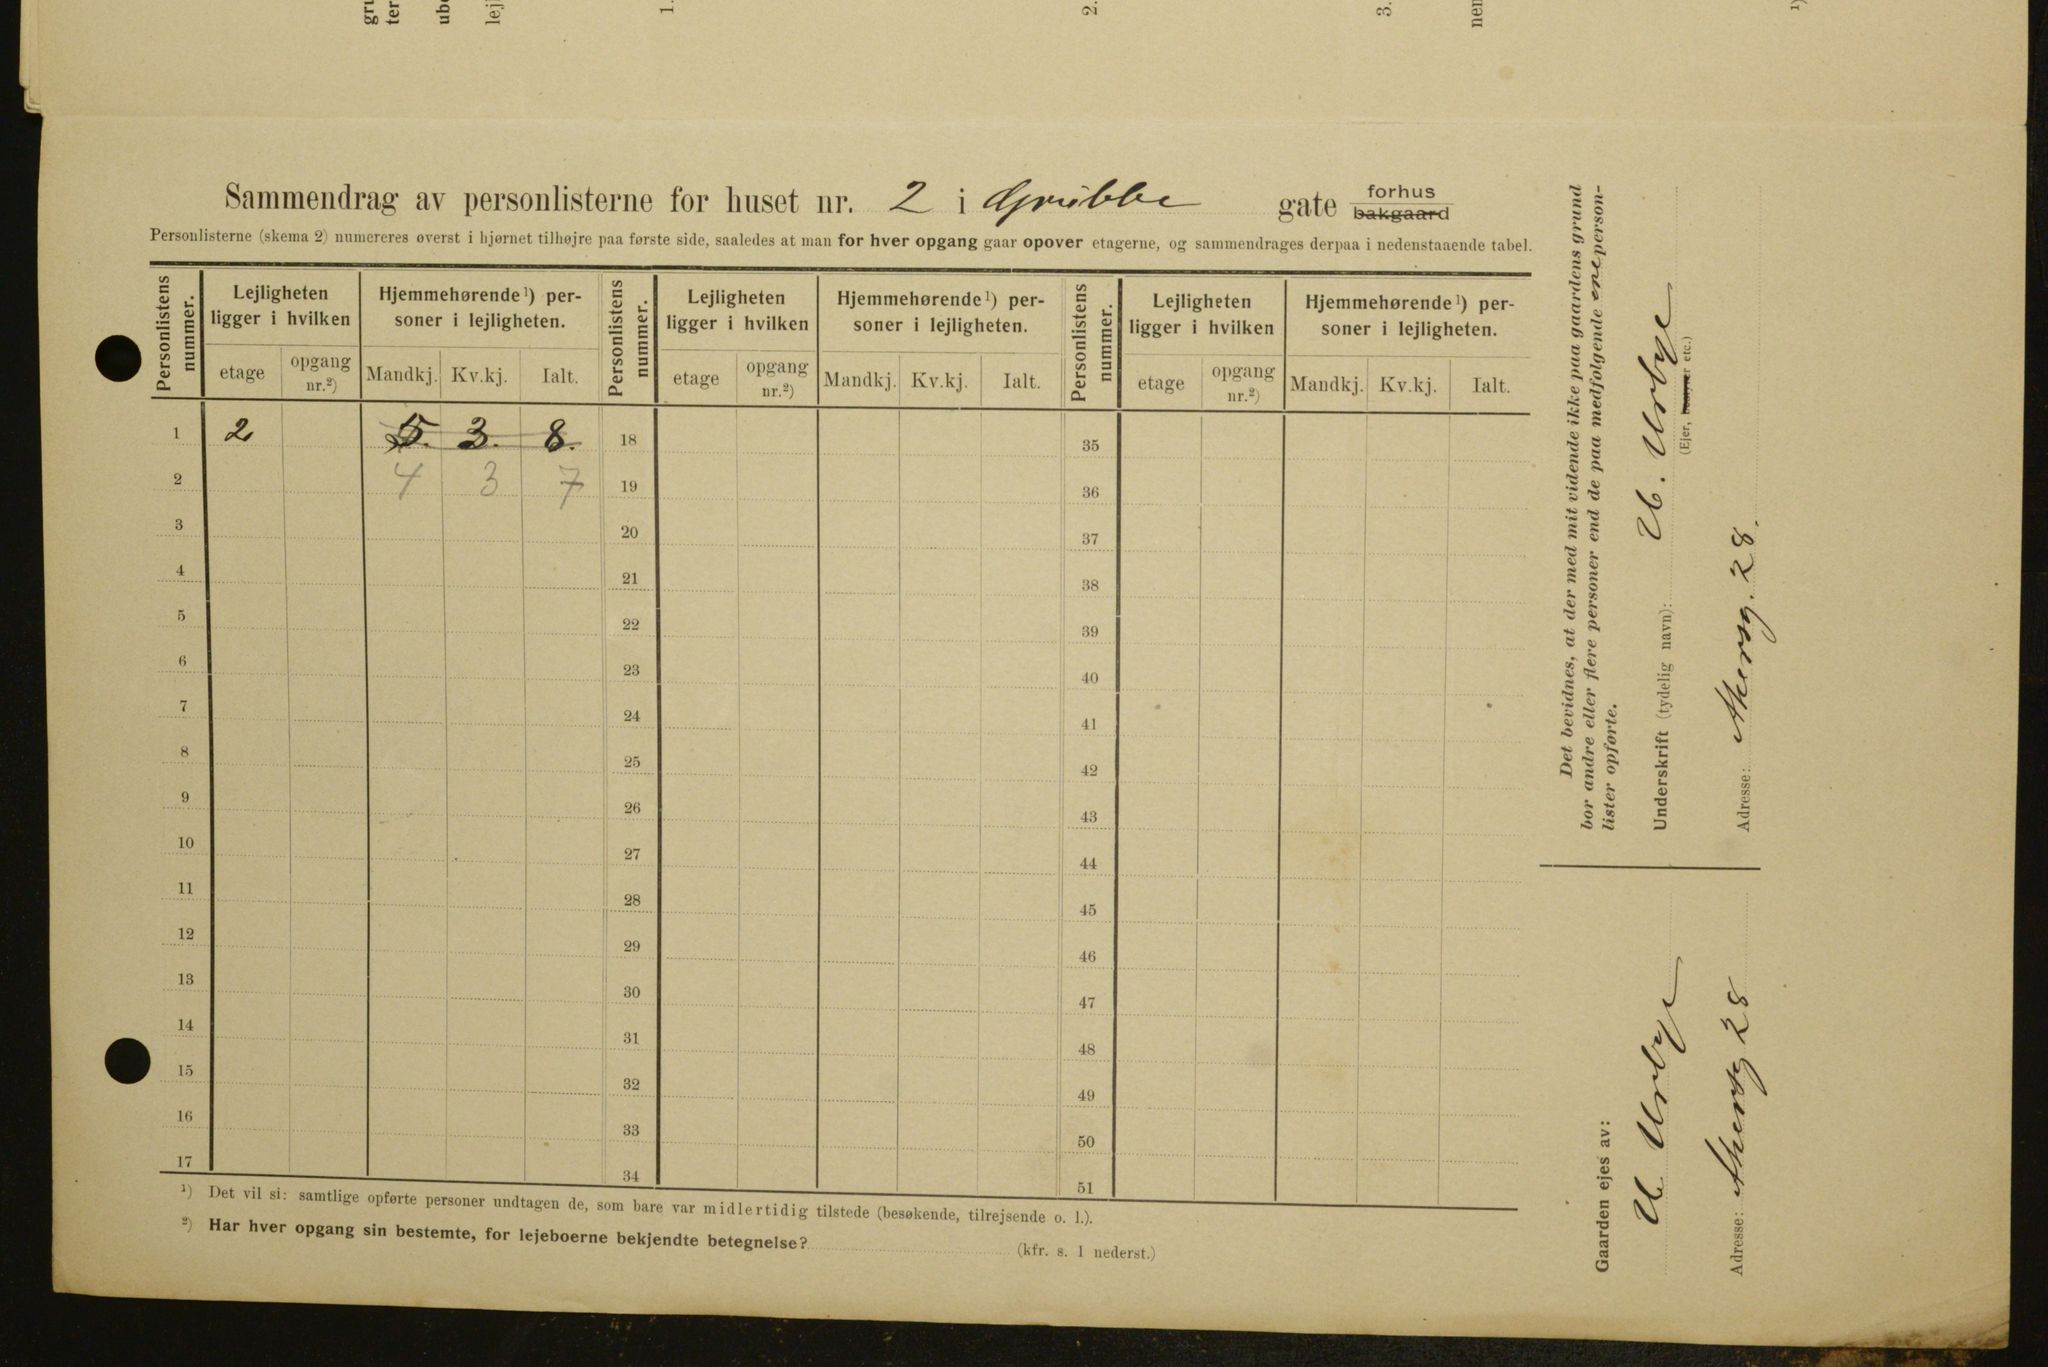 Sammendrag av personlisterne for huset nr. 2 i Grubbe gate forhus bakgaard
Personlisterne (skema 2) numereres øverst i hjørnet tilhøjre paa første side, saaledes at man for hver opgang gaar opover etagerne, og sammendrages derpaa i nedenstaaende tabel.
Personlistens nummer. Lejligheten ligger i hvilken Hjemmehørende ¹) personer i lejligheten. Personlistens nummer. Lejligheten ligger i hvilken Hjemmehørende ¹) personer i lejligheten. Personlistens nummer. Lejligheten ligger i hvilken Hjemmehørende ¹) personer i lejligheten.
etage opgang nr.²) Mandkj. Kv.kj. Ialt. etage opgang nr.²) Mandkj. Kv.kj. Ialt. etage opgang nr.²) Mandkj. Kv.kj. Ialt.
1 2 5. 3. 8. 18 35
2 4 3 7 19 36
3 20 37
4 21 38
5 22 39
6 23 40
7 24 41
8 25 42
9 26 43
10 27 44
11 28 45
12 29 46
13 30 47
14 31 48
15 32 49
16 33 50
17 34 51
¹) Det vil si: samtlige opførte personer undtagen de, som bare var midlertidig tilstede (besøkende, tilrejsende o. l.).
²) Har hver opgang sin bestemte, for lejeboerne bekjendte betegnelse? (kfr. s. 1 nederst.)
Det bevidnes, at der med mit vidende ikke paa gaardens grund
bor andre eller flere personer end de paa medfolgende ene person-
lister opførte.
Underskrift (tydelig navn): U. Urbye
(Ejer, bestyrer etc.)
Adresse: Akersg. 28.
Gaarden ejes av:
U Urbye
Adresse: Akersg 28